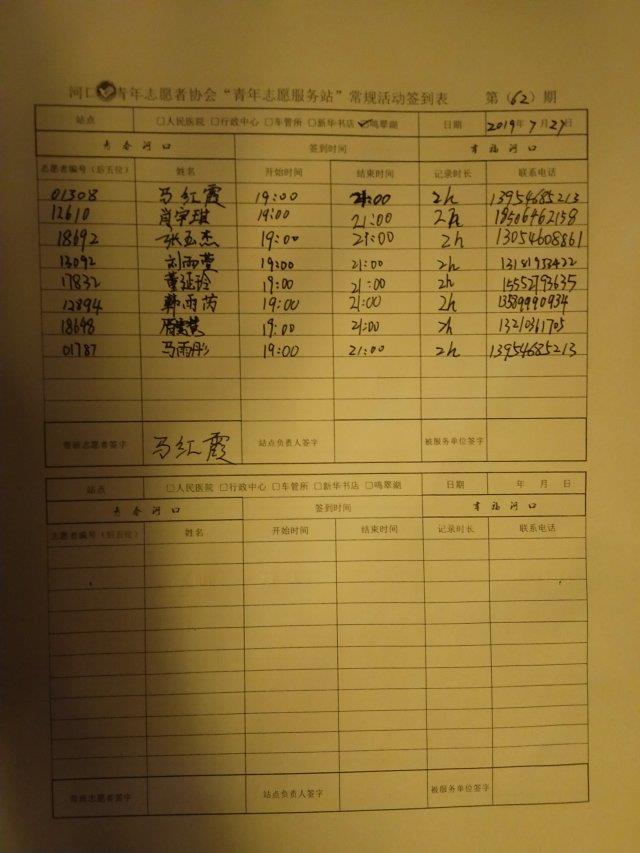 河口青年志愿者协会“青年志愿服务站”常规活动签到表 第（62）期
站点 □人民医院 □行政中心 □车管所 □新华书店 ☑鸣翠湖 日期 2019年7月27日
青春河口 签到时间 幸福河口
志愿者编号（后五位） 姓名 开始时间 结束时间 记录时长 联系电话
01308 马红霞 19:00 21:00 2h 13954685213
12610 肖宇琪 19:00 21:00 2h
18692 张孟杰 19:00 21:00 2h 13054608861
13092 刘雨萱 19:00 21:00 2h
17832 董延玲 19:00 21:00 2h 15552793635
12894 韩雨芮 19:00 21:00 2h
18698 19:00 21:00 2h 13210361705
01787 马雨彤 19:00 21:00 2h 13954685213
带班志愿者签字 马红霞 站点负责人签字 被服务单位签字
站点 □人民医院 □行政中心 □车管所 □新华书店 □鸣翠湖 日期 年 月 日
青春河口 签到时间 幸福河口
志愿者编号（后五位） 姓名 开始时间 结束时间 记录时长 联系电话
带班志愿者签字 站点负责人签字 被服务单位签字